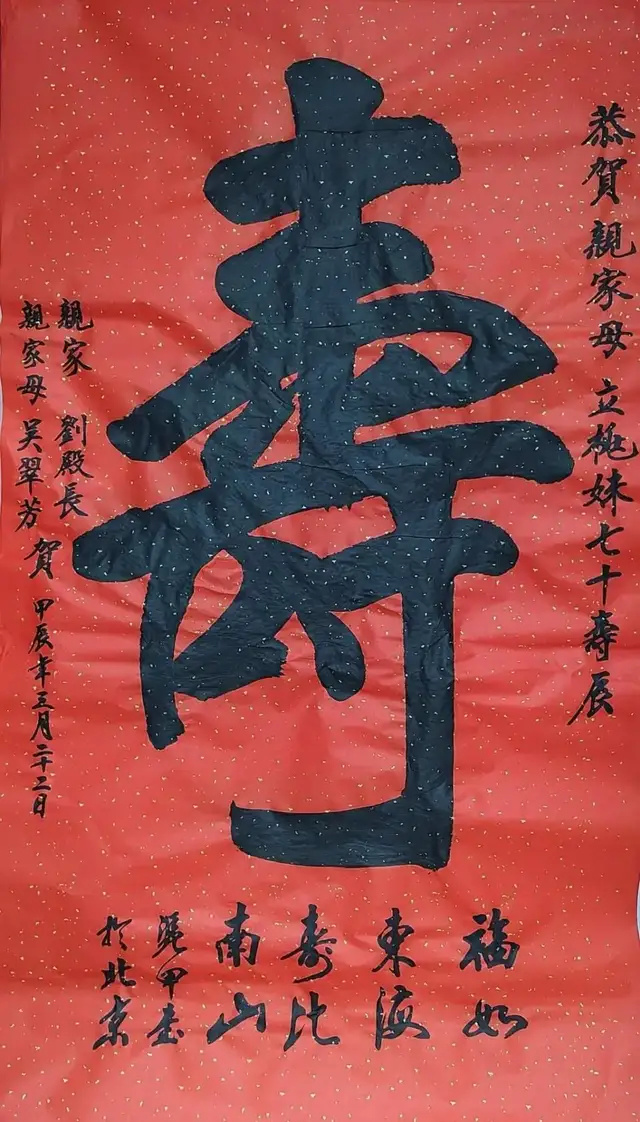 恭賀親家母立桃妹七十壽辰
壽
親家 劉殿長
親家母 吴翠芳 賀 甲辰年三月二十二日
福如
東海
壽比
南山
甲書
於北京